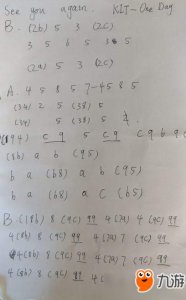 See you again. KLT-One Day
B. (2b) 5 3 (2c)
3 5 6 5 3 5
(2a) 5 3 (2c)
A. 4 5 8 5 7-4 5 8 5
(34) 2 5 (38) 5
(34) 5 (38) 5
(94) c9 5 c9 c9 b9
(8b) a b (95)
b a (b8) a b (95)
b a (b8) a c (b5)
B. (18b) 8 (9c) 99 4 (7a) 4 (9c) 99
4 (8b) 8 (9c) 99 4 (7a) 7 (9c) 99
4 (8b) 8 (9c) 99 4 (7a) 7 (9c) 99
4 (8b) 8 (9c) 99 4c
九游